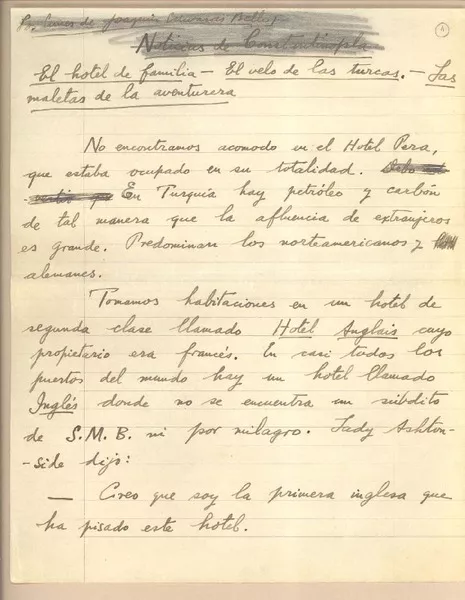 de Joaquín Edwards Bello
4
Noticias de Constantinopla
El hotel de familia – El velo de las turcas. – Las
maletas de la aventurera
No encontramos acomodo en el Hotel Pera,
que estaba ocupado en su totalidad.
En Turquía hay petróleo y carbón
de tal manera que la afluencia de extranjeros
es grande. Predominan los norteamericanos y
alemanes.
Tomamos habitaciones en un hotel de
segunda clase llamado Hotel Anglais cuyo
propietario era francés. En casi todos los
puertos del mundo hay un hotel llamado
Inglés donde no se encuentra un súbdito
de S.M.B. ni por milagro. Lady Ashton-
-side dijo:
— Creo que soy la primera inglesa que
ha pisado este hotel.